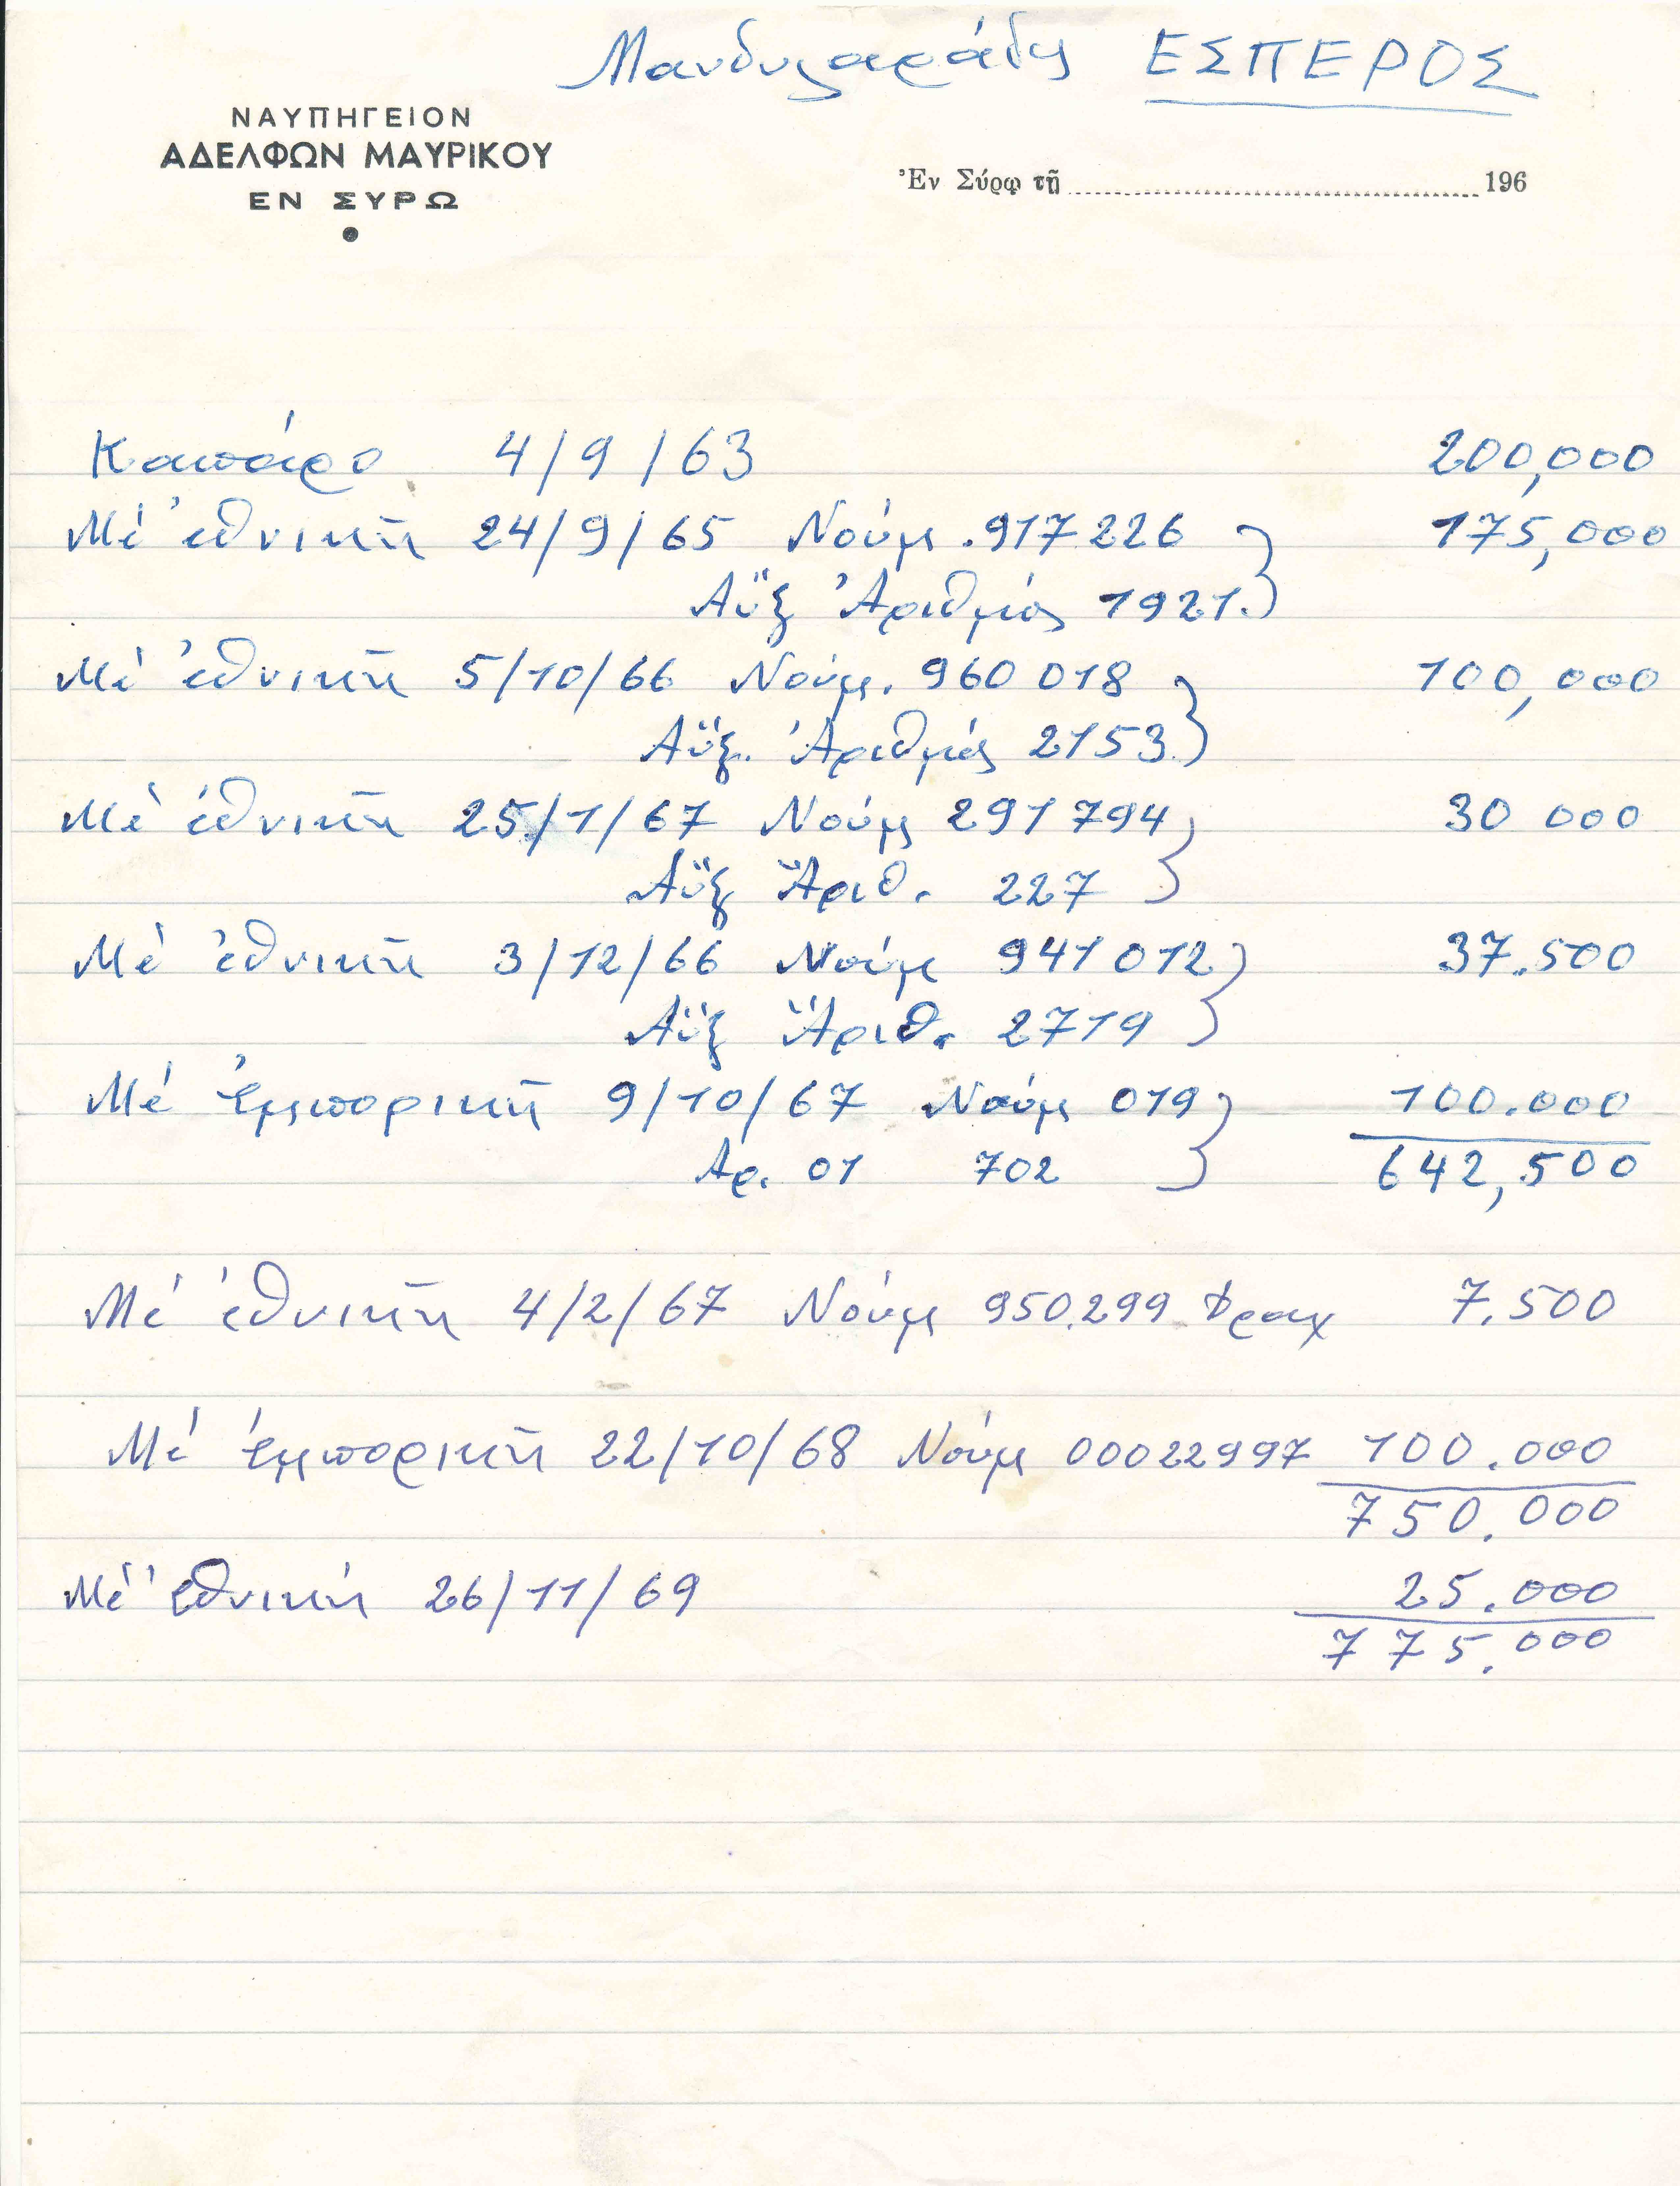 Μανδυλαράκης ΕΣΠΕΡΟΣ
ΝΑΥΠΗΓΕΙΟΝ
ΑΔΕΛΦΩΝ ΜΑΥΡΙΚΟΥ
ΕΝ ΣΥΡΩ
Ἐν Σύρῳ τῇ 196
Καπάρο 4/9/63 200,000
Μέ ἐθνική 24/9/65 Νούμ. 917226 175,000
Αὔξ Ἀριθμός 1921.
Μέ ἐθνική 5/10/66 Νούμ. 960018 100,000
Αὔξ. Ἀριθμός 2153
Μέ ἐθνική 25/1/67 Νούμ 291794 30 000
Αὔξ Ἀριθ. 227
Μέ ἐθνική 3/12/66 Νούμ 941012 37.500
Αὔξ Ἀριθ. 2719
Μέ Ἐμπορική 9/10/67 Νούμ 019 100.000
Αρ. 01 702 642,500
Μέ ἐθνική 4/2/67 Νούμ 950.299 Δραχ 7.500
Μέ ἐμπορική 22/10/68 Νούμ 00022997 100.000
750.000
Μέ ἐθνική 26/11/69 25.000
775.000